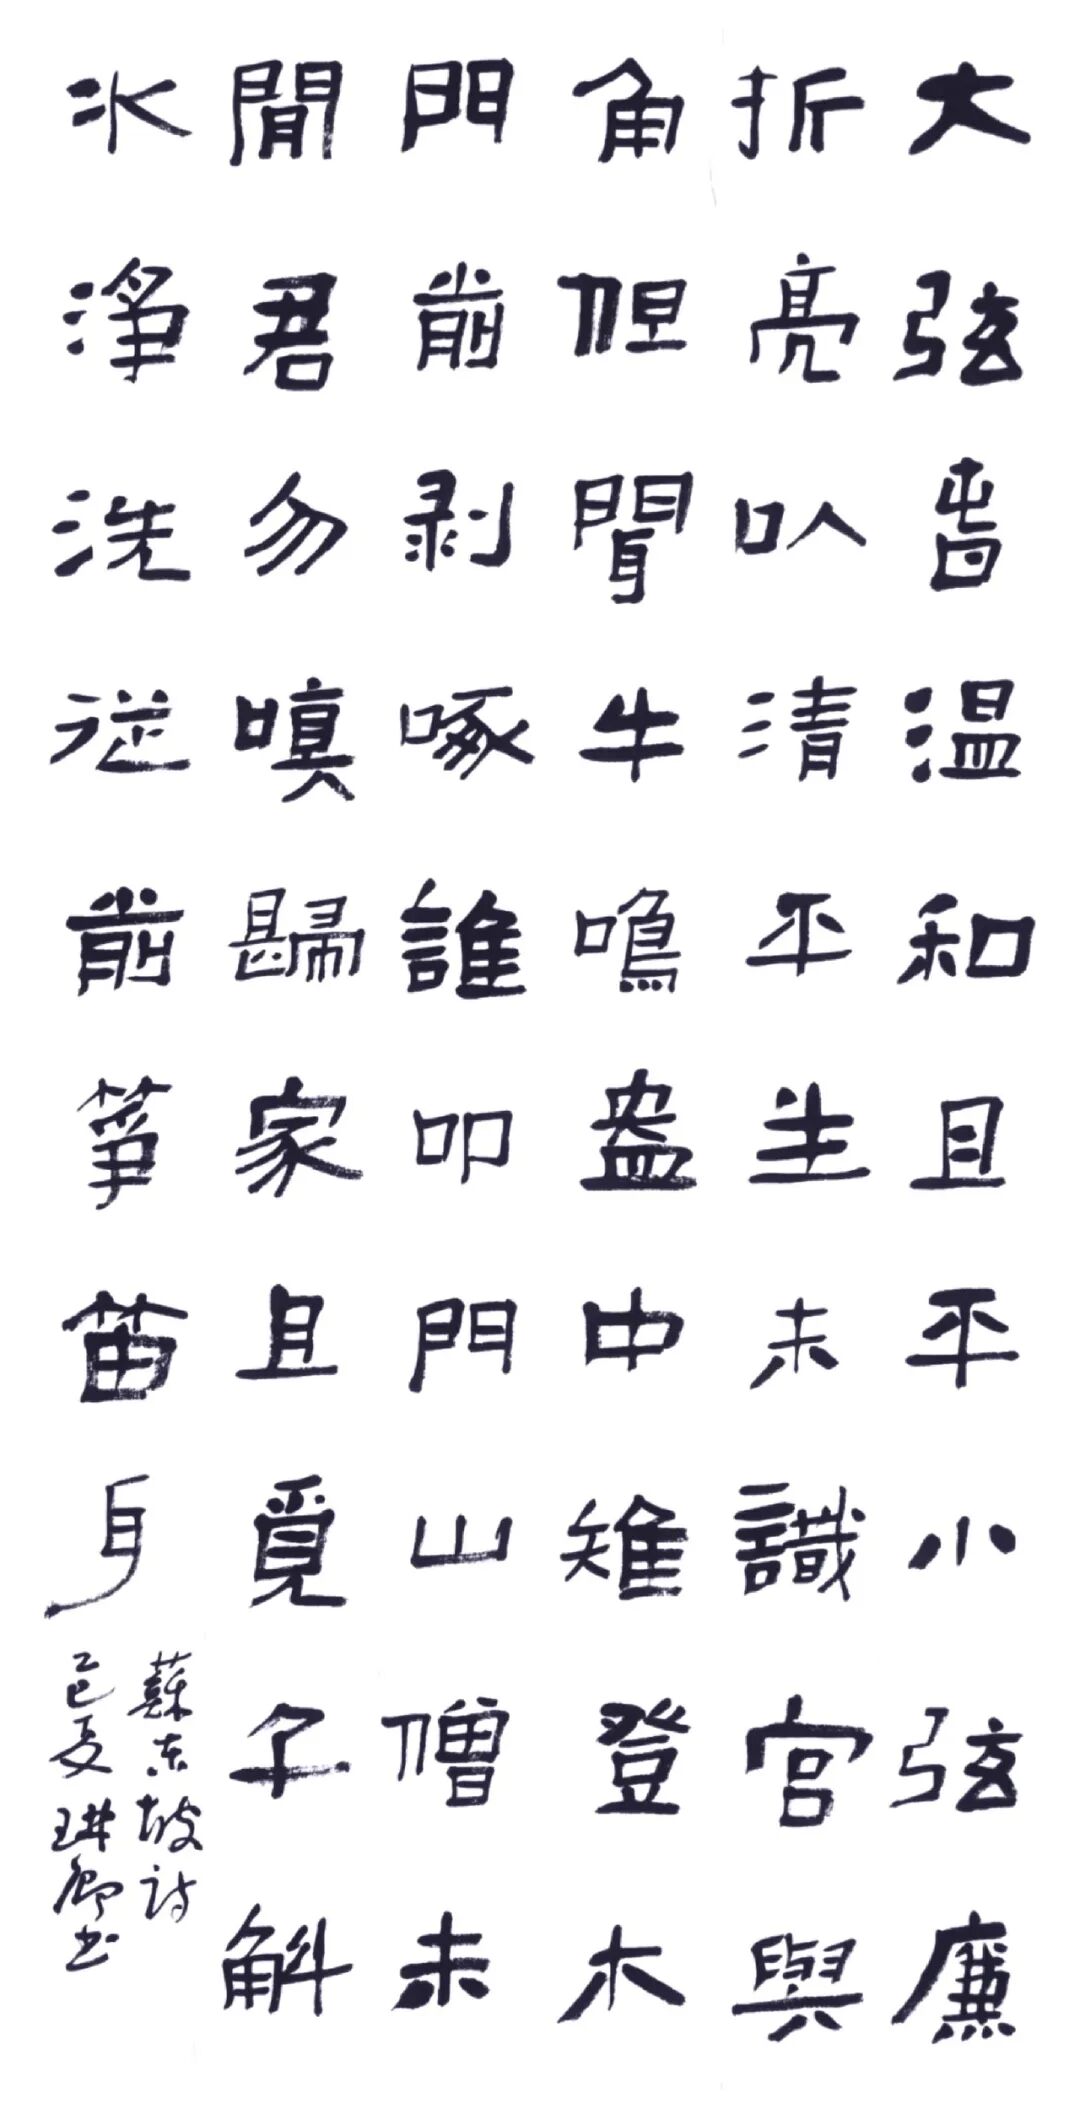 大弦春温和且平小弦廉
折亮㕥清平生未識宮與
角但聞牛鳴盎中雉登木
門前剥啄誰叩門山僧未
閒君勿嗔歸家且覓千斛
水淨洗從前箏笛耳
蘇东坡詩
乙巳夏卿书